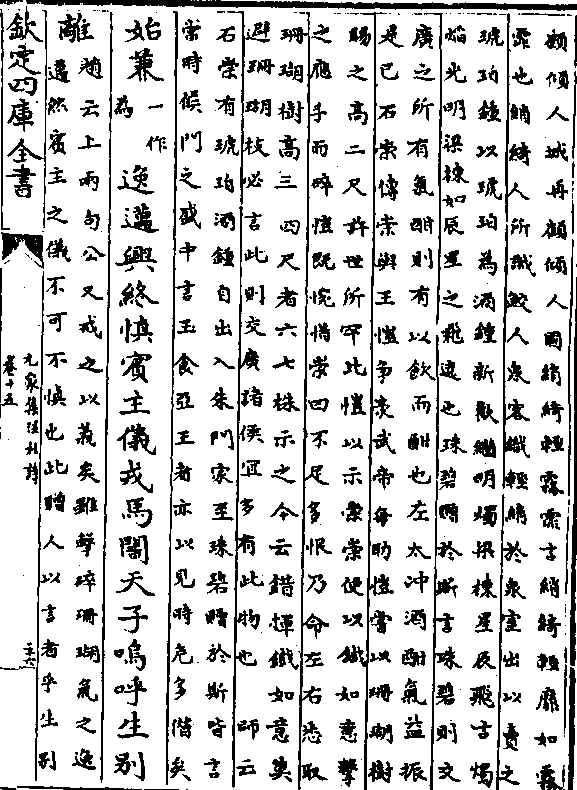 顧傾人城再顧傾人國綃綺輕霧霏言綃綺輕靡如霧
霏也綃綺人所織鮫人泉客織輕綃於泉室出以賣之
琥珀鍾以琥珀為酒鍾新歡繼明燭梁棟星辰飛言燭
焰光明梁棟如辰星之飛遶也珠碧贈於斯言珠碧則交
廣之所有氣酣則有以飲而酣也左太冲酒酣氣益振
是已石崇傳崇與王愷争豪武帝每助愷嘗以珊瑚樹
賜之高二尺許世所罕比愷以示崇崇便以鐵如意擊
之應手而碎愷既惋惜崇曰不足多恨乃命左右悉取
珊瑚樹高三四尺者六七株示之今云錯揮鐵如意莫
避珊瑚枝必言此則交廣諸侯宜多有此物也 師云
石崇有琥珀酒鍾自出入朱門家至珠碧贈於斯皆言
當時侯門之盛中言玉食亞王者亦以見時危多僭矣
始兼一作為逸邁興終慎賓主儀戎馬闇天子嗚呼生别
離趙云上兩句公又戒之以義矣雖擊碎珊瑚氣之逸
邁然賓主之儀不可不慎也此贈人以言者乎生别
欽定四庫全書
九家集注杜詩
卷十五
三六